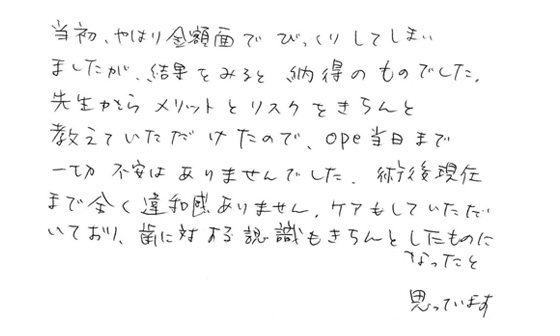 当初、やはり金額面でびっくりしてしまい
ましたが、結果をみると納得のものでした。
先生からメリットとリスクをきちんと
教えていただけたので、ope当日まで
一切不安はありませんでした。術後現在
まで全く違和感ありません。ケアもしていただ
いており、歯に対する認識もきちんとしたものに
なったと
思っています